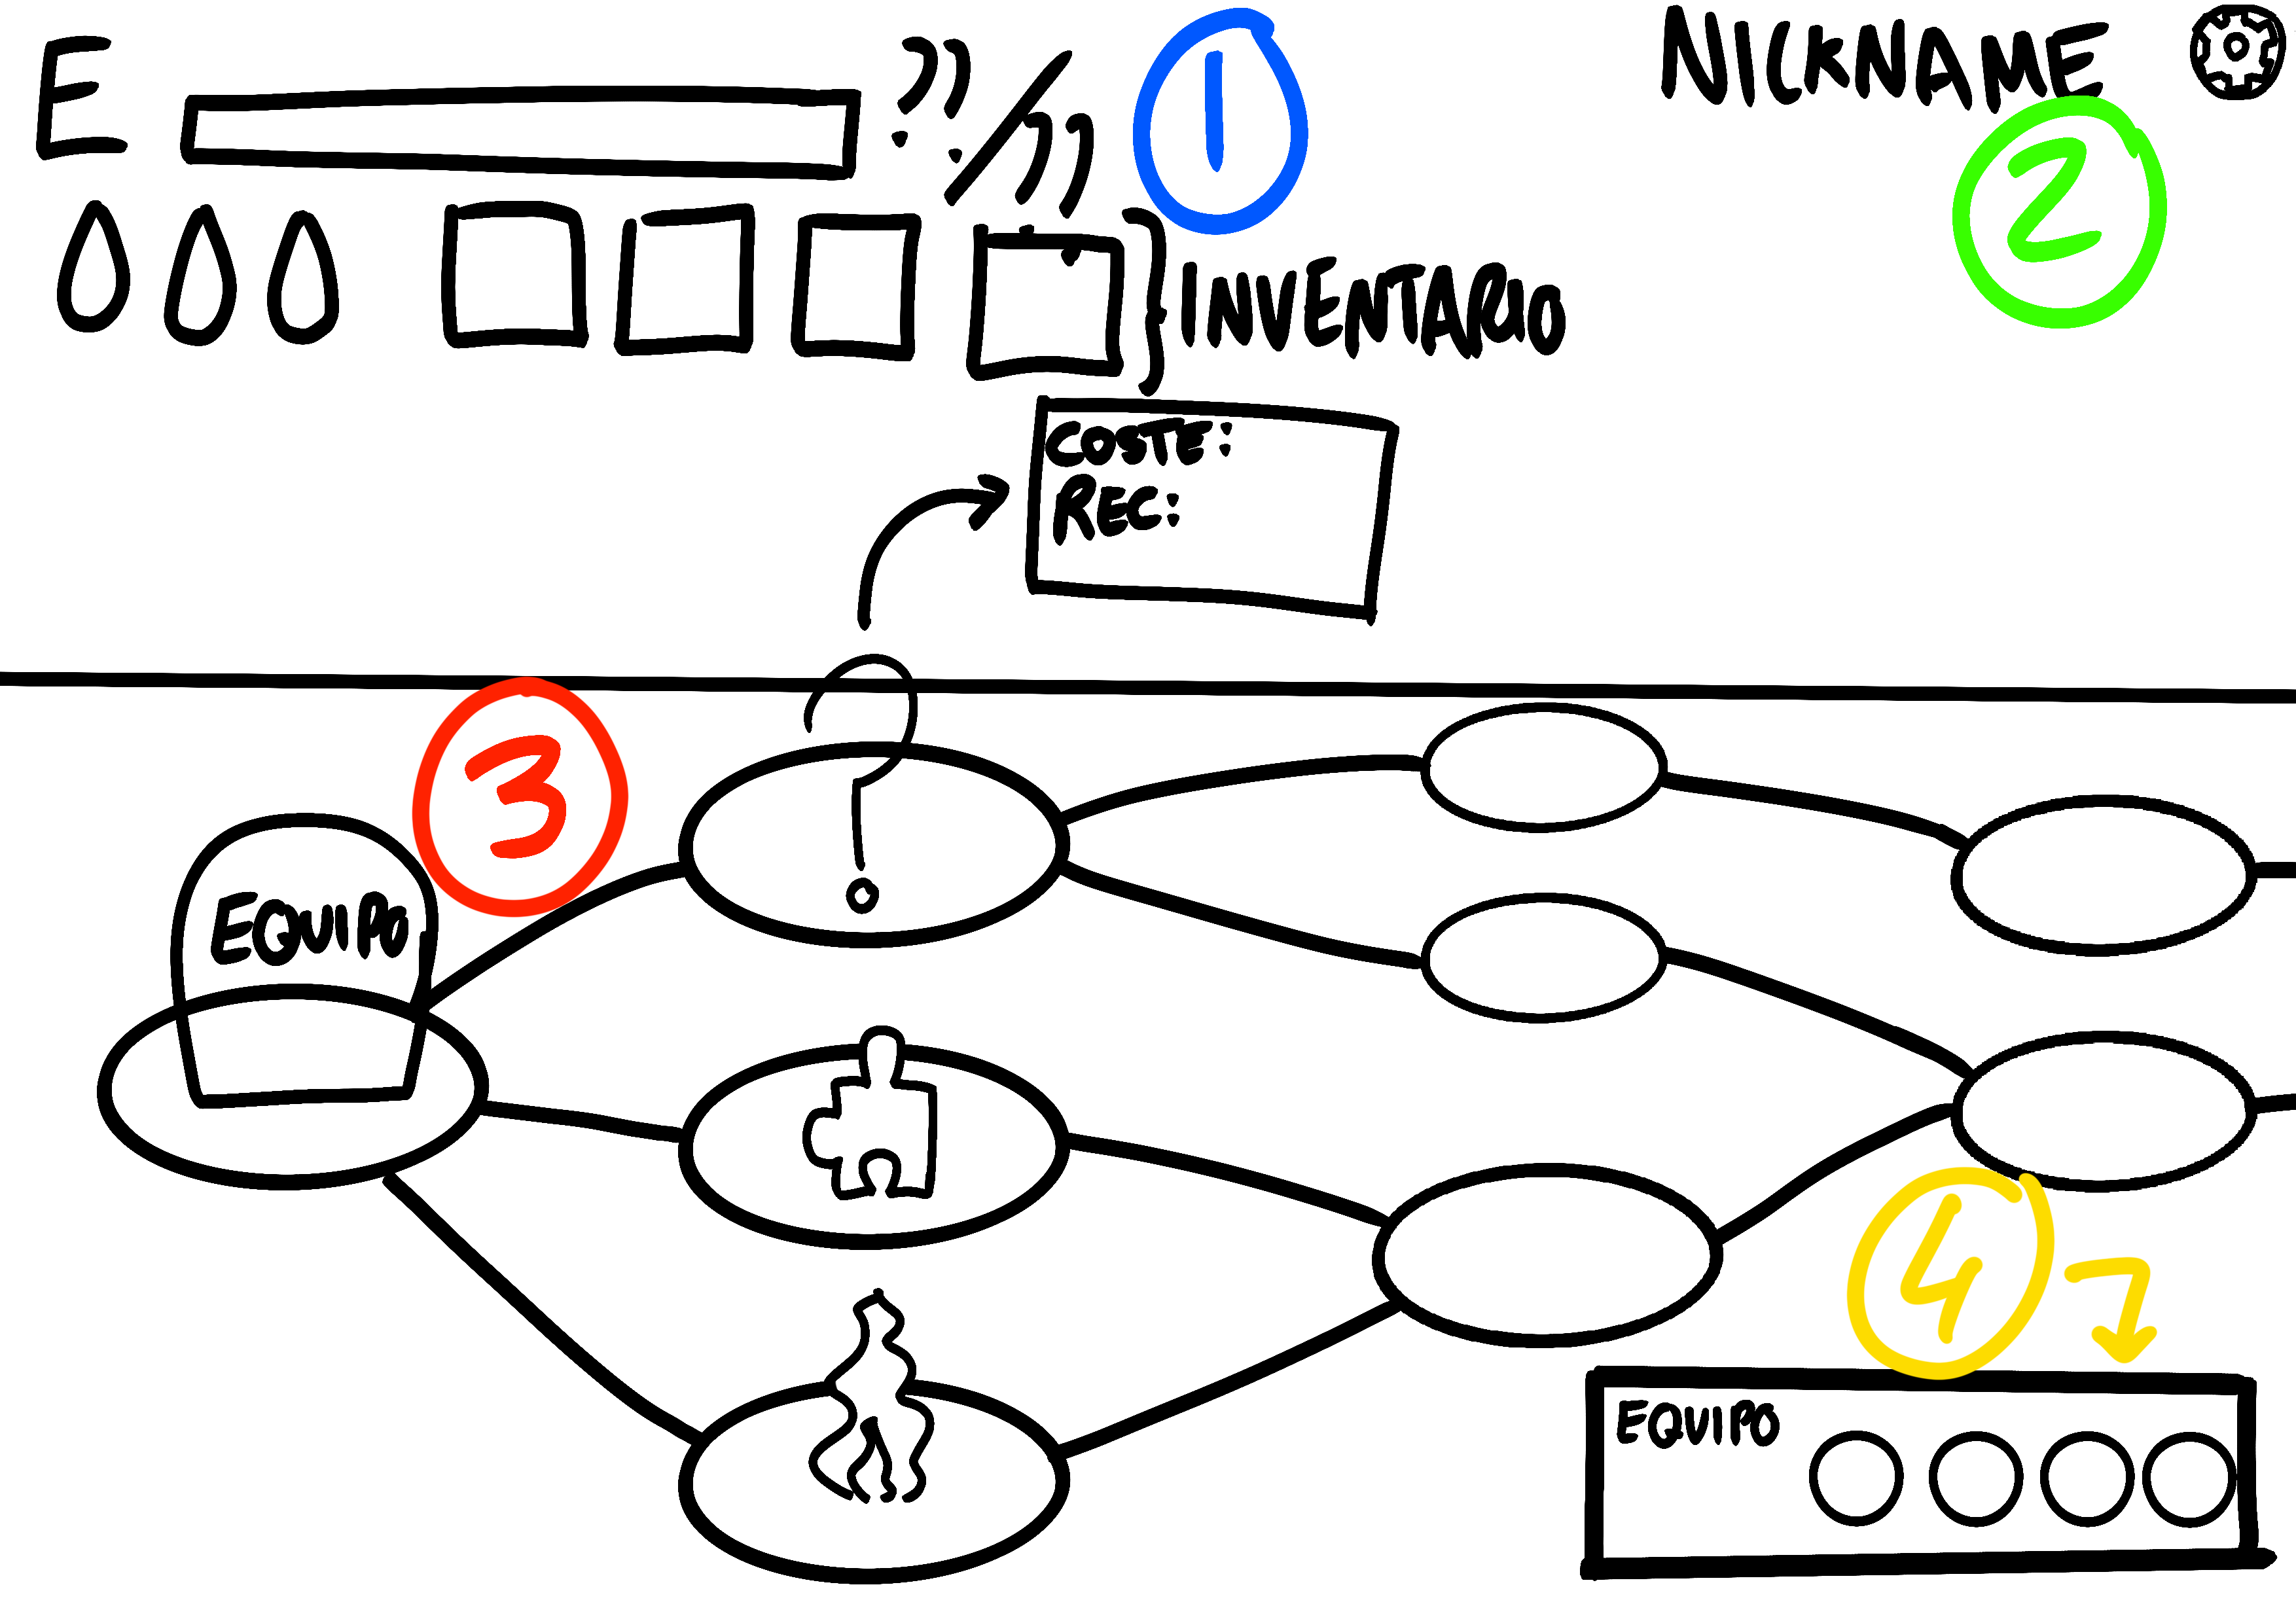 E ??/??
1
NICKNAME
2
INVENTARIO
COSTE:
REC:
3
EQUIPO
4
EQUIPO